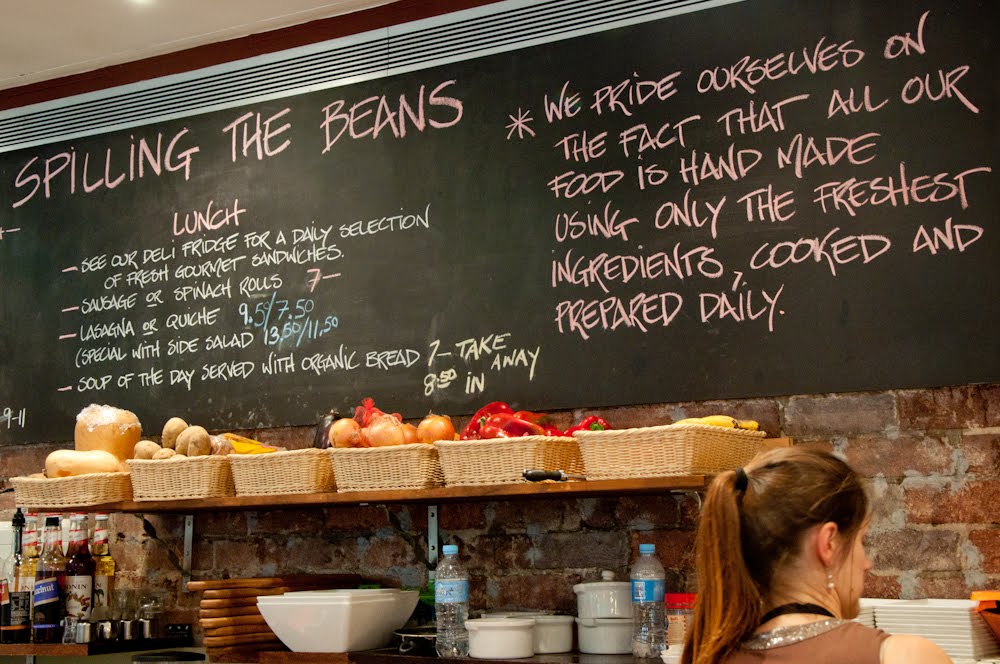 SPILLING THE BEANS
LUNCH
– SEE OUR DELI FRIDGE FOR A DAILY SELECTION
OF FRESH GOURMET SANDWICHES.
– SAUSAGE OR SPINACH ROLLS 7–
– LASAGNA OR QUICHE 9.50/7.50
(SPECIAL WITH SIDE SALAD 13,50/11,50
– SOUP OF THE DAY SERVED WITH ORGANIC BREAD 7– TAKE AWAY
8.50 IN
* WE PRIDE OURSELVES ON
THE FACT THAT ALL OUR
FOOD IS HAND MADE
USING ONLY THE FRESHEST
INGREDIENTS, COOKED AND
PREPARED DAILY.
9-11
MONIN